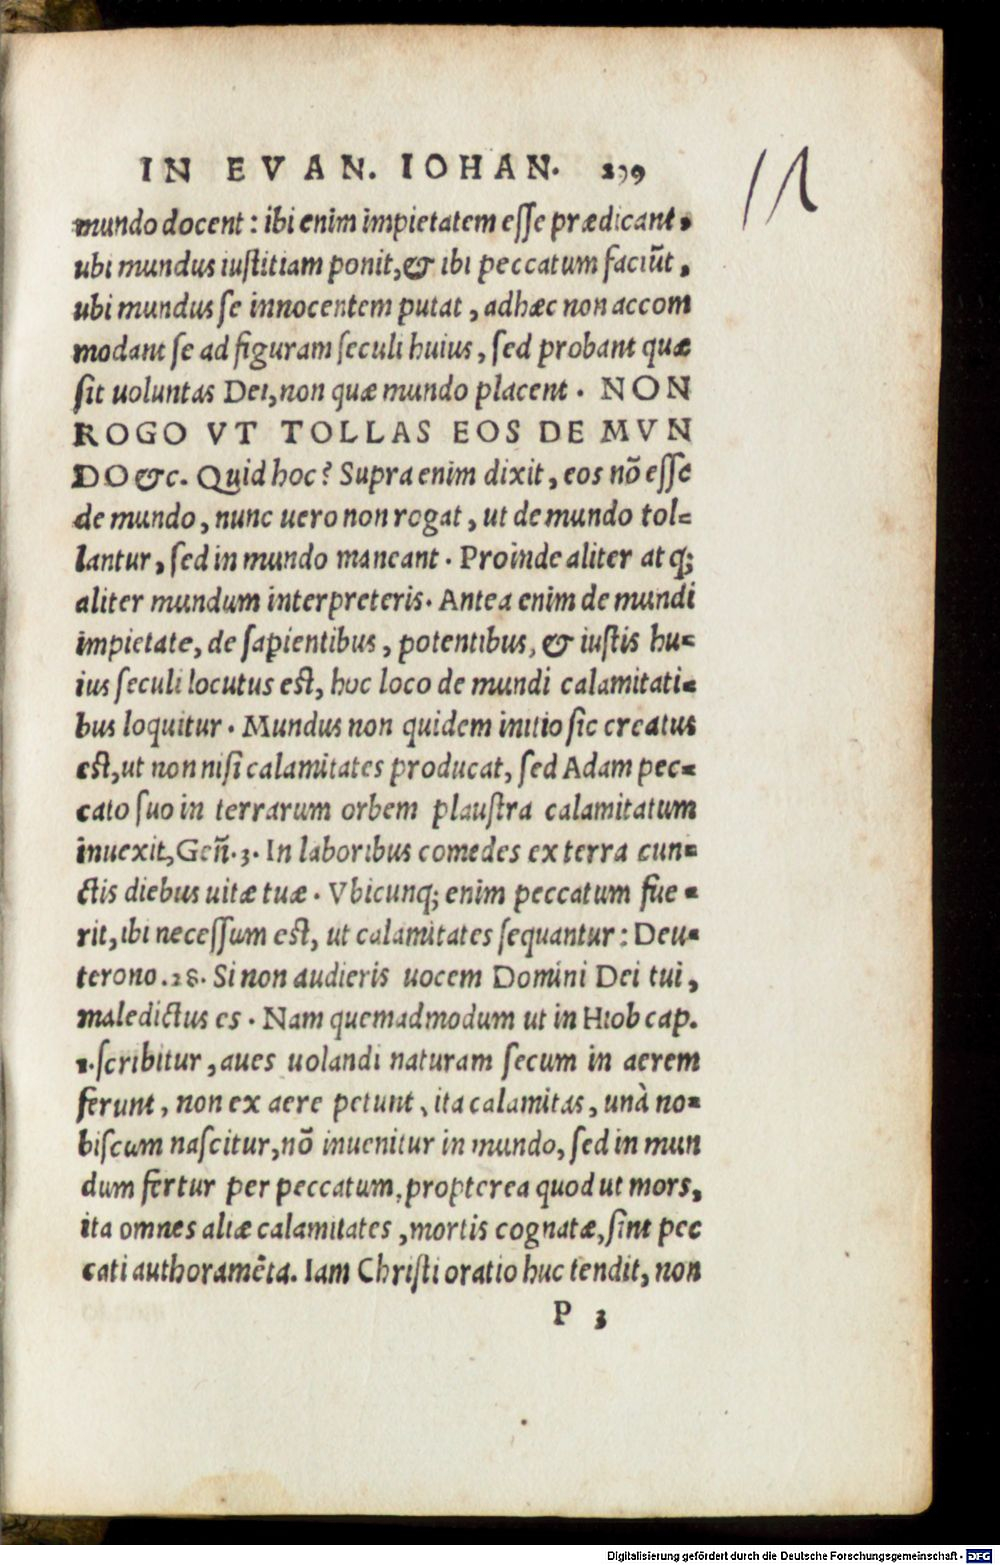 IN EVAN. IOHAN. 199
mundo docent : ibi enim impietatem eſſe prædicant,
ubi mundus iuſtitiam ponit, & ibi peccatum faciūt,
ubi mundus ſe innocentem putat, adhæc non accom
modant ſe ad figuram ſeculi huius, ſed probant quæ
ſit uoluntas Dei, non quæ mundo placent. NON
ROGO VT TOLLAS EOS DE MVN
DO &c. Quid hoc? Supra enim dixit, eos nō eſſe
de mundo, nunc uero non rogat, ut de mundo tol=
lantur, ſed in mundo maneant. Proinde aliter atq;
aliter mundum interpreteris. Antea enim de mundi
impietate, de ſapientibus, potentibus, & iuſtis hu=
ius ſeculi locutus eſt, hoc loco de mundi calamitati=
bus loquitur. Mundus non quidem initio ſic creatus
eſt, ut non niſi calamitates producat, ſed Adam pec=
cato ſuo in terrarum orbem plauſtra calamitatum
inuexit, Geñ. 3. In laboribus comedes ex terra cun=
ctis diebus uitæ tuæ. Vbicunq; enim peccatum fue=
rit, ibi neceſſum eſt, ut calamitates ſequantur : Deu=
terono. 28. Si non audieris uocem Domini Dei tui,
maledictus es. Nam quemadmodum ut in Hiob cap.
1. ſcribitur, aues uolandi naturam ſecum in aerem
ferunt, non ex aere petunt, ita calamitas, unà no=
biſcum naſcitur, nō inuenitur in mundo, ſed in mun
dum fertur per peccatum, propterea quod ut mors,
ita omnes aliæ calamitates, mortis cognatæ, ſint pec
cati authoramēta. Iam Chriſti oratio huc tendit, non
P 3
Digitalisierung gefördert durch die Deutsche Forschungsgemeinschaft - DFG